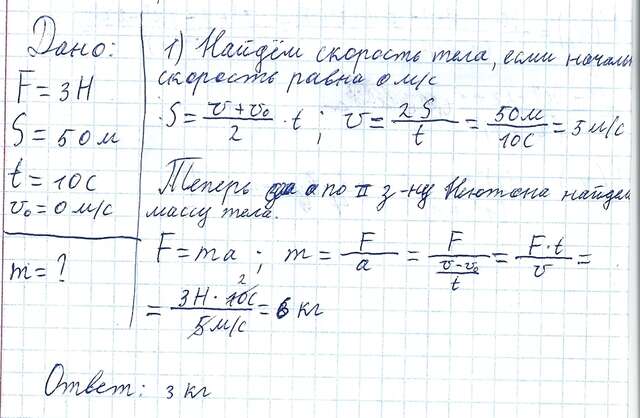 Дано:
F = 3Н
S = 50м
t = 10с
v₀ = 0 м/с
m = ?
1) Найдём скорость тела, если началь
скорость равна 0 м/с
S = (v + v₀)/2 · t ; v = 2S/t = 50м/10с = 5 м/с
Теперь по II з-ну Ньютона найдем
массу тела.
F = ma ; m = F/a = F/((v-v₀)/t) = F·t/v =
= 3Н · 10с/5м/с = 6 кг
2
Ответ: 3 кг